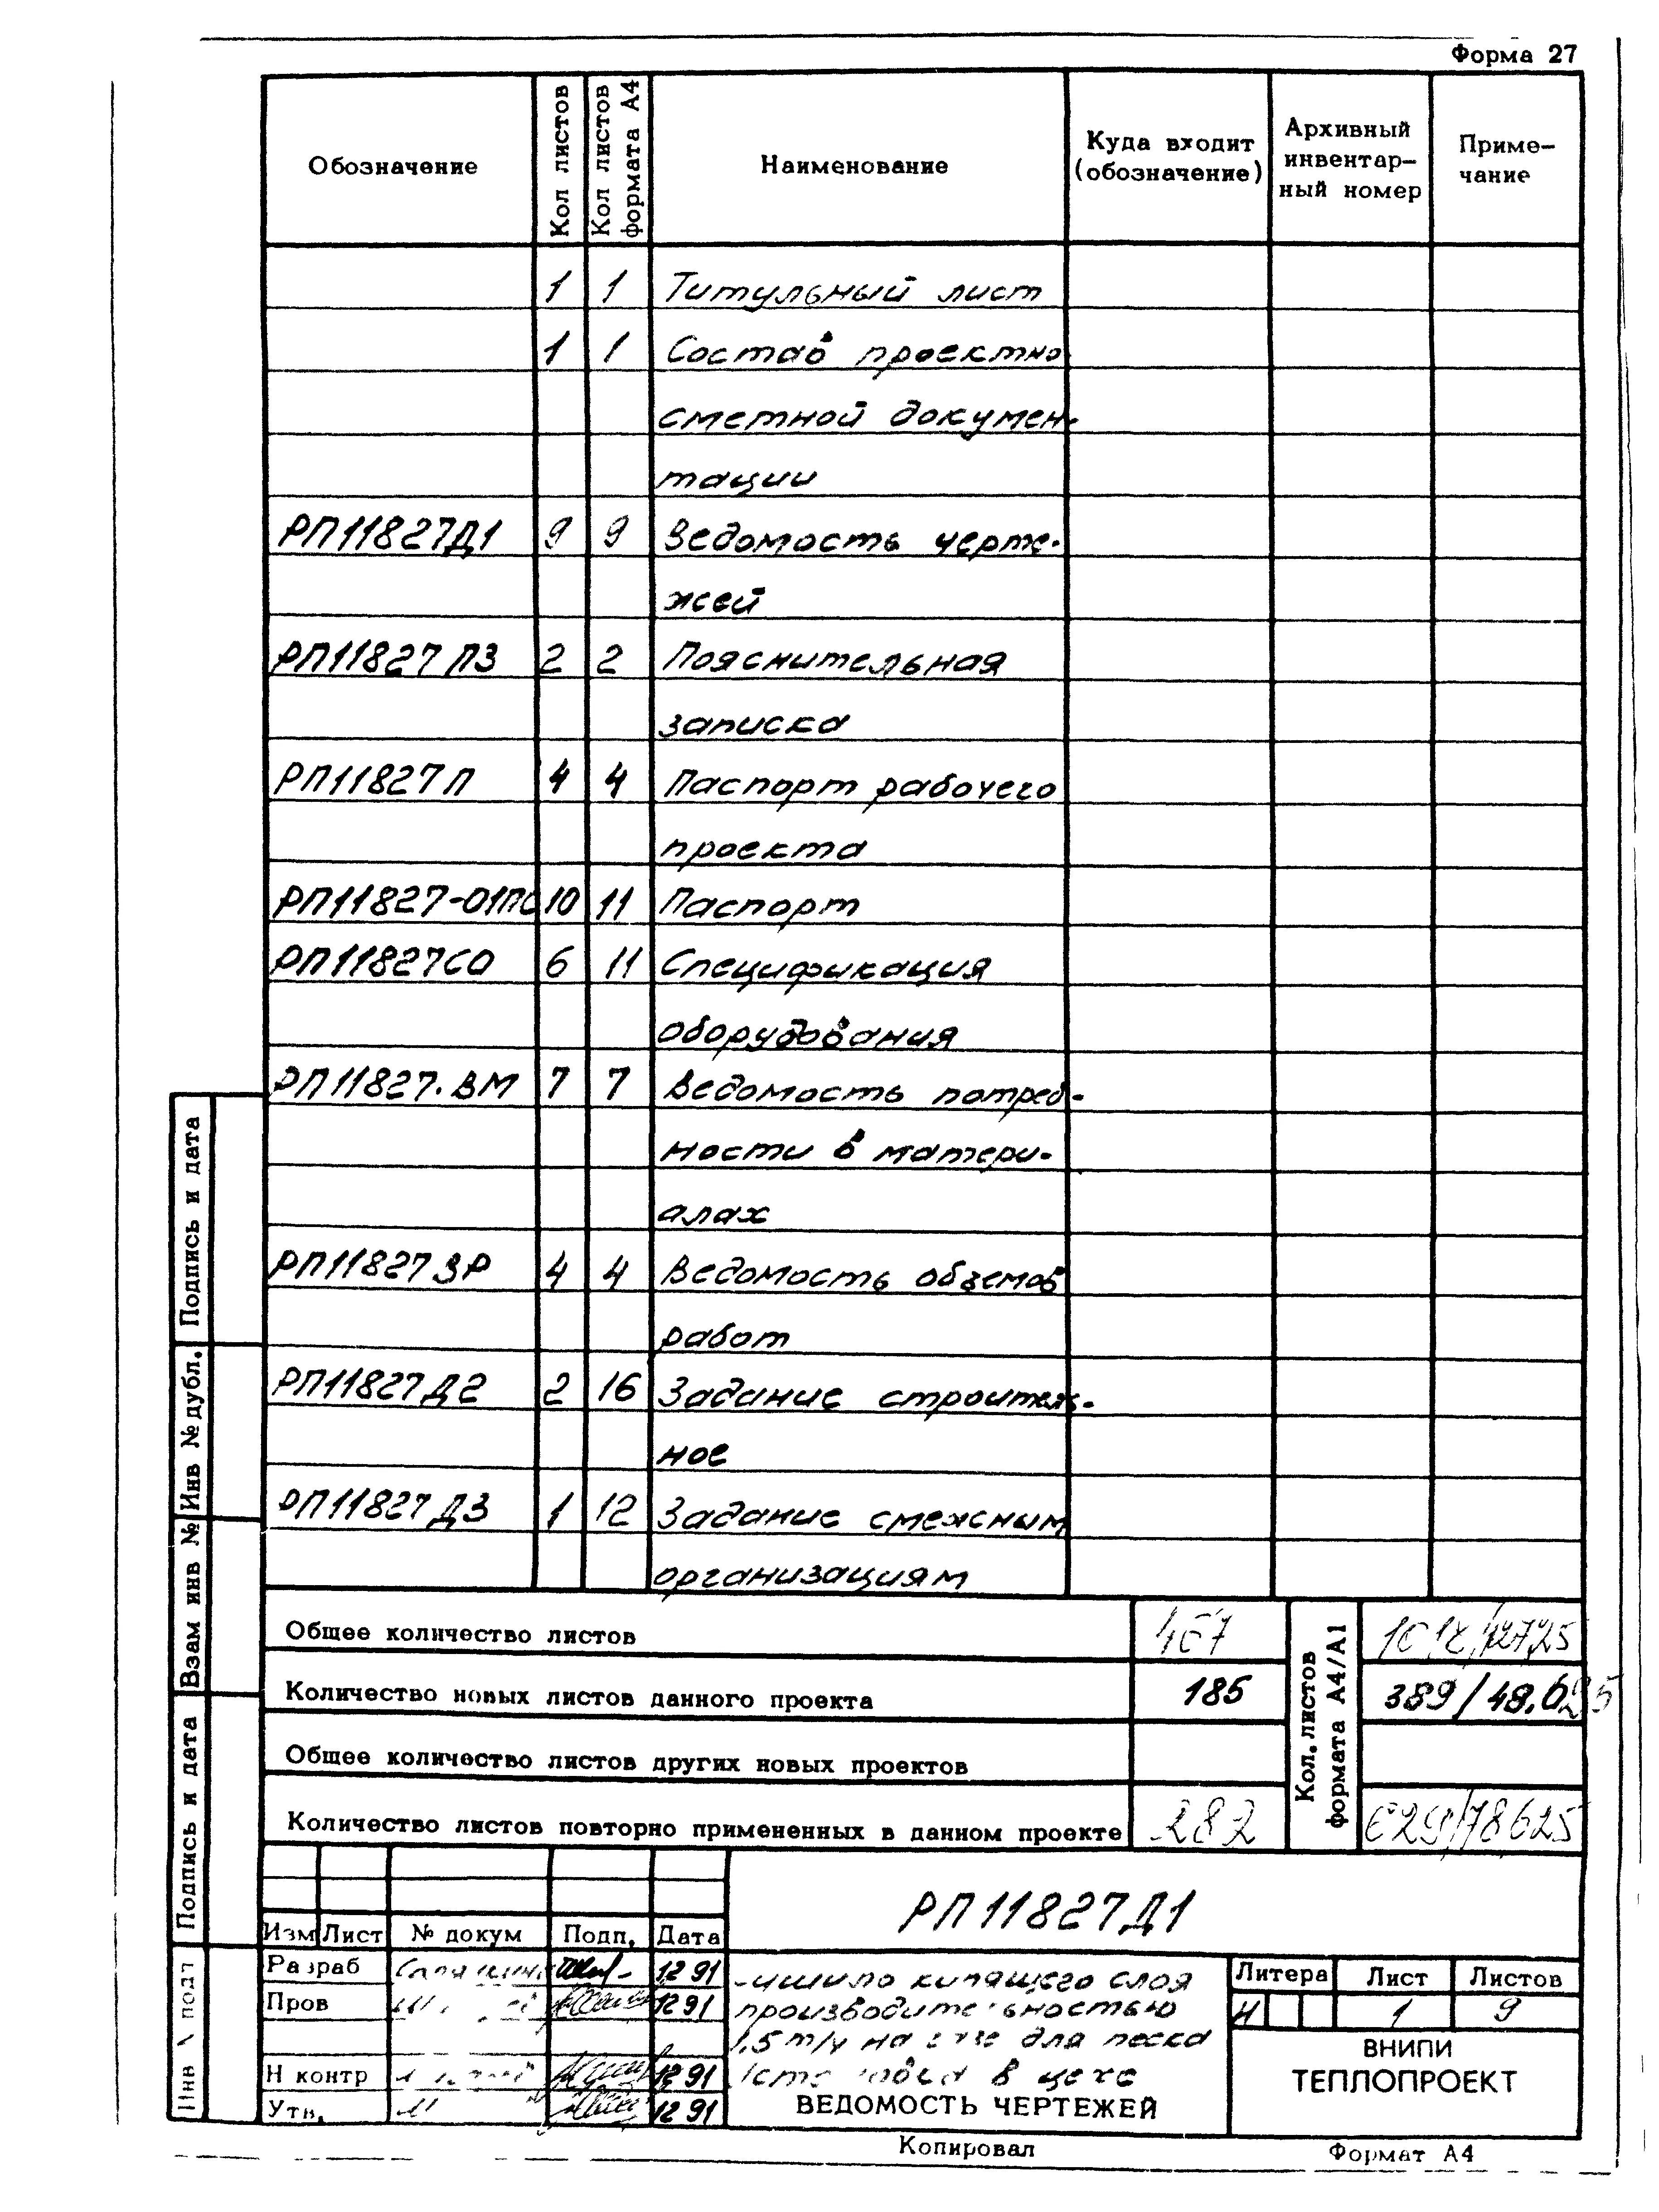 Форма 27
Обозначение
Кол листов
Кол листов формата А4
Наименование
Куда входит (обозначение)
Архивный инвентар-ный номер
Приме-чание
1 1 Титульный лист
1 1 Состав проектно
сметной докумен-
тации
РП11827Д1 9 9 Ведомость черте-
жей
РП11827 ПЗ 2 2 Пояснительная
записка
РП11827 П 4 4 Паспорт рабочего
проекта
РП11827-01ПС 10 11 Паспорт
РП11827СО 6 11 Спецификация
оборудования
РП11827.ВМ 7 7 Ведомость потреб-
ности в матери-
алах
РП11827 ВР 4 4 Ведомость объемов
работ
РП11827 Д2 2 16 Задание строитель-
ное
РП11827 Д3 1 12 Задание смежным
организациям
Общее количество листов 467
Количество новых листов данного проекта 185 389/48.625
Общее количество листов других новых проектов
Количество листов повторно примененных в данном проекте 282
Кол. листов формата А4/А1
РП11827Д1
Изм Лист № докум Подп. Дата
Разраб 12 91
Пров 12 91
Н контр 12 91
Утв. 12 91
кипящего слоя
производительностью
1,5 т/ч на для песка
в цехе
ВЕДОМОСТЬ ЧЕРТЕЖЕЙ
Литера Лист Листов
И 1 9
ВНИПИ
ТЕПЛОПРОЕКТ
Копировал Формат А4
Подпись и дата
Инв № дубл.
Взам инв №
Подпись и дата
Инв № подл